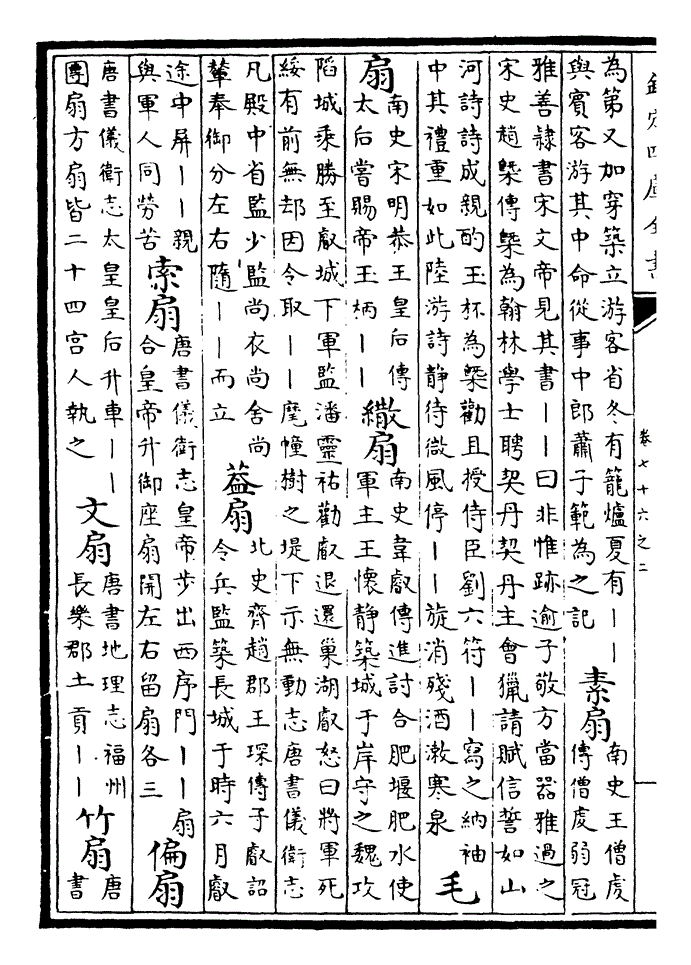 欽定四庫全書
卷七十六之二
為第又加穿築立游客省冬有籠爐夏有丨丨
與賓客游其中命從事中郎蕭子範為之記
素扇
南史王僧虔
傳僧虔弱冠
雅善隸書宋文帝見其書丨丨曰非惟跡逾子敬方當器雅過之
宋史趙槩傳槩為翰林學士聘契丹契丹主會獵請賦信誓如山
河詩詩成親酌玉杯為槩勸且授侍臣劉六符丨丨寫之納袖
中其禮重如此陸游詩靜待微風停丨丨旋消殘酒漱寒泉
毛
扇
南史宋明恭王皇后傳
太后嘗賜帝玉柄丨丨
繖扇
南史韋叡傳進討合肥堰肥水使
軍主王懷靜築城于岸守之魏攻
陷城乘勝至叡城下軍監潘靈祐勸叡退還巢湖叡怒曰將軍死
綏有前無却因令取丨丨麾幢樹之堤下示無動志唐書儀衛志
凡殿中省監少監尚衣尚舍尚
輦奉御分左右隨丨丨而立
葢扇
北史齊趙郡王琛傳子叡詔
令兵監築長城于時六月叡
途中屏丨丨親
與軍人同勞苦
索扇
唐書儀衛志皇帝步出西序門丨丨扇
合皇帝升御座扇開左右留扇各三
偏扇
唐書儀衛志太皇皇后升車丨丨
團扇方扇皆二十四宫人執之
文扇
唐書地理志福州
長樂郡土貢丨丨
竹扇
唐
書